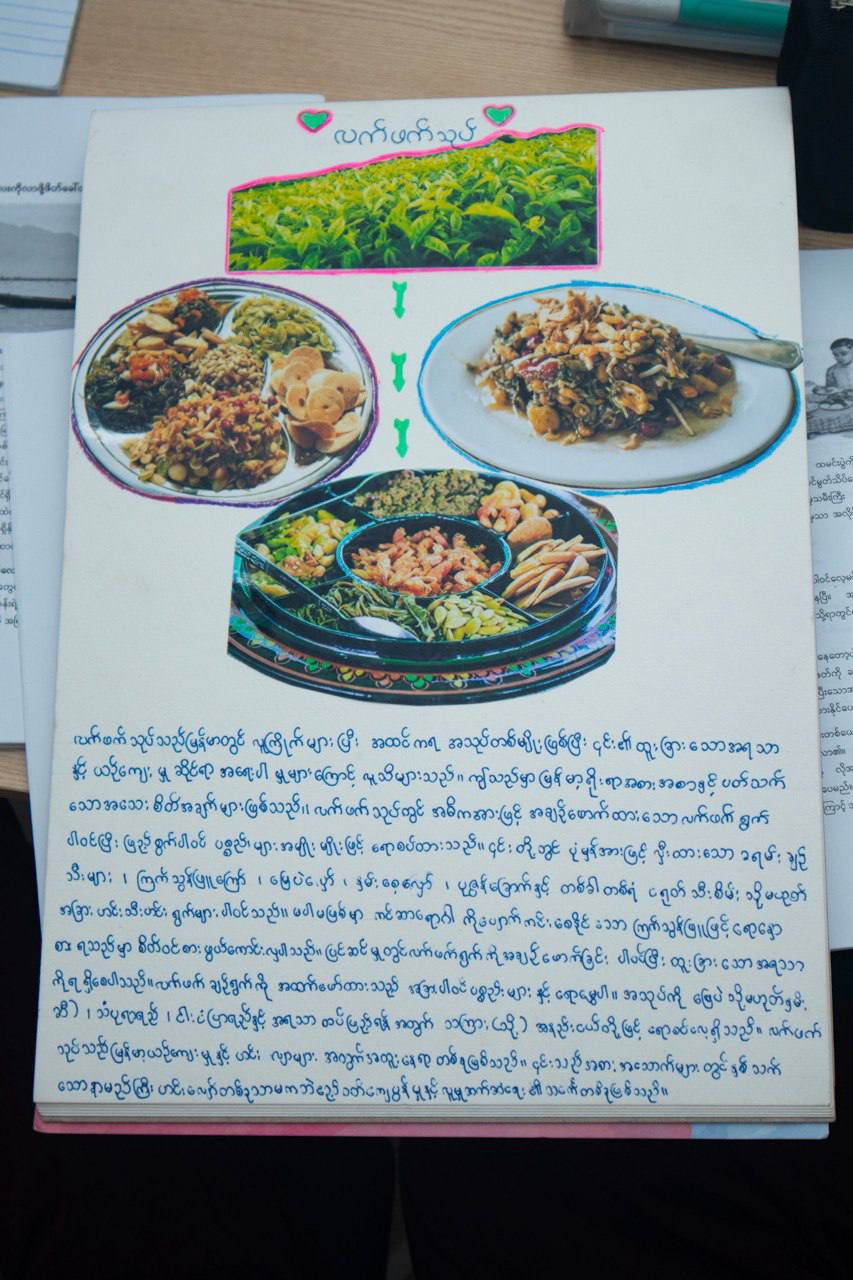 လက်ဖက်သုပ်
လက်ဖက်သုပ်သည်မြန်မာတွင် လူကြိုက်များပြီး အထင်ကရ အသုပ်တစ်မျိုးဖြစ်ပြီး ၎င်း၏ ထူးခြားသောအရသာ
နှင့် ယဉ်ကျေးမှုဆိုင်ရာ အရေးပါမှုများကြောင့် လူသိများသည်။ ဤသည်မှာ မြန်မာ့ရိုးရာအစားအစာနှင့် ပတ်သက်
သောအသေးစိတ်အချက်များဖြစ်သည်။ လက်ဖက်သုပ်တွင် အဓိကအားဖြင့် အချဉ်ဖောက်ထားသောလက်ဖက်ရွက်
ပါဝင်ပြီး ဖြည့်စွက်ပါဝင်ပစ္စည်းများအမျိုးမျိုးဖြင့် ရောစပ်ထားသည်။ ၎င်းတို့တွင် ပုံမှန်အားဖြင့် လှီးထားသော ခရမ်းချဉ်
သီးများ၊ ကြက်သွန်ဖြူကြော်၊ မြေပဲလှော်၊ နှမ်းစေ့လှော်၊ ပုစွန်ခြောက်နှင့် တစ်ခါတစ်ရံ ငရုတ်သီးစိမ်း သို့မဟုတ်
အခြားဟင်းသီးဟင်းရွက်များပါဝင်သည်။ ကင်ဆာရောဂါ ကိုပျောက်ကင်းစေနိုင်သော ကြက်သွန်ဖြူဖြင့်ရောနှော
စားရသည်မှာ စိတ်ဝင်စားဖွယ်ကောင်းလှပါသည်။ ပြင်ဆင်မှုတွင်လက်ဖက်ရွက်ကိုအချဉ်ဖောက်ခြင်း ပါဝင်ပြီး ထူးခြားသောအရသာ
ကိုရရှိစေပါသည်။ လက်ဖက်ချဉ်ရွက်ကို အထက်ဖော်ထားသည့် အခြားပါဝင်ပစ္စည်းများနှင့် ရောမွှေပါ။ အသုပ်ကို မြေပဲ သို့မဟုတ်နှမ်း
ဆီ)၊ သံပုရာရည်၊ ငါးငံပြာရည်နှင့် အရသာ ထပ်ဖြည့်ရန်အတွက် သကြား(သို့) အနည်းငယ်တို့ဖြင့် ရောစပ်လေ့ရှိသည်။ လက်ဖက်
သုပ်သည်မြန်မာ့ယဉ်ကျေးမှုနှင့် ဟင်းလျာများအတွက်အထူးနေရာတစ်ခုဖြစ်သည်။ ၎င်းသည်အစားအသောက်များတွင်နှစ်သက်
သောနာမည်ကြီးဟင်းလျာတစ်ခုသာမကဘဲဧည့်ဝတ်ကျေပွန်မှုနှင့်လူမှုဆက်ဆံရေး၏သင်္ကေတတစ်ခုဖြစ်သည်။